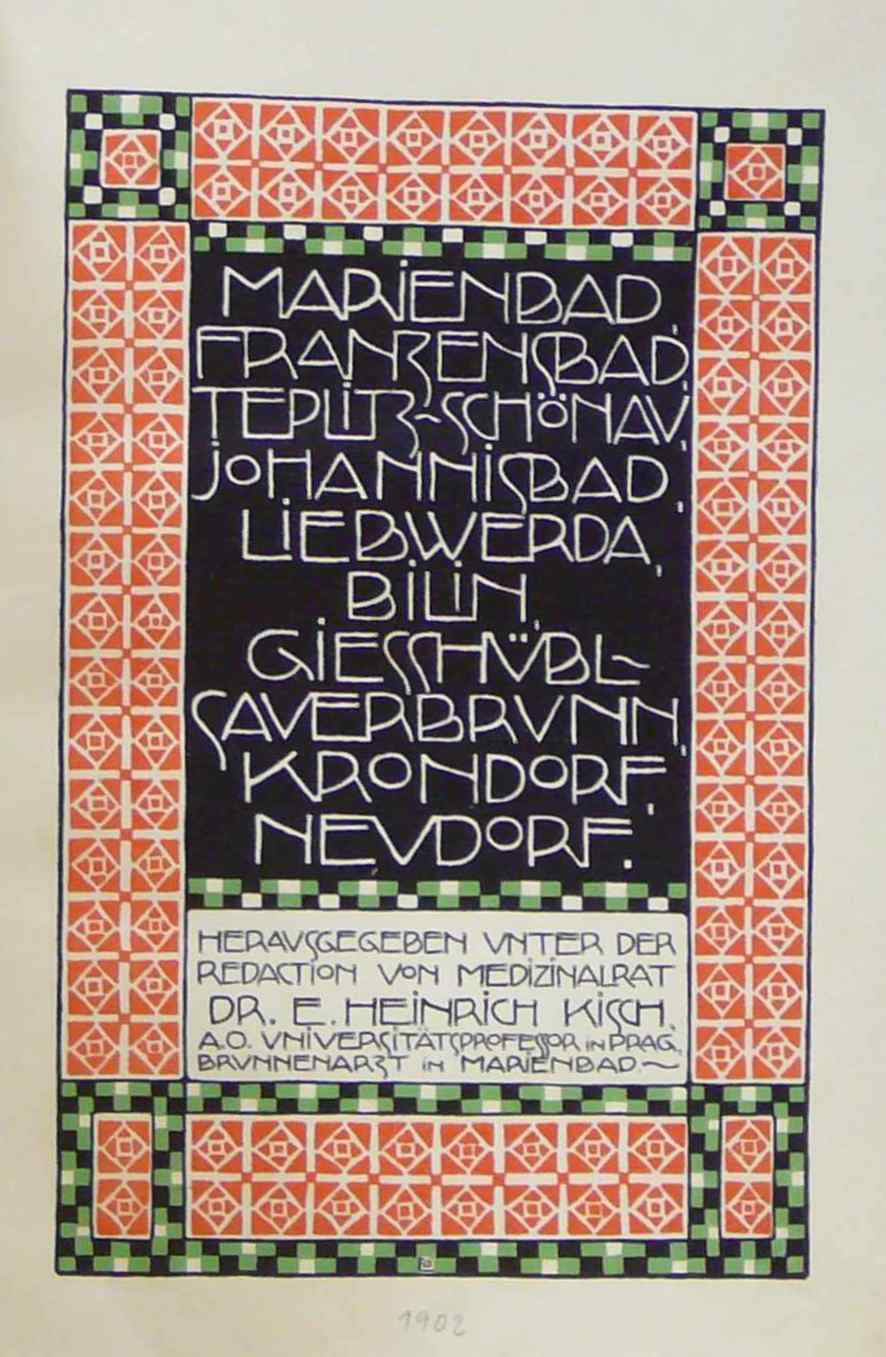 MARIENBAD,
FRANZENSBAD,
TEPLITZ~SCHÖNAV,
JOHANNISBAD,
LIEBWERDA,
BILIN,
GIESSHVBL~
SAVERBRVNN,
KRONDORF,
NEVDORF.
HERAVSGEGEBEN VNTER DER
REDACTION VON MEDIZINALRAT
DR. E. HEINRICH KISCH,
A.O. VNIVERSITÄTSPROFESSOR in PRAG,
BRVNNENARZT in MARIENBAD.~
1902